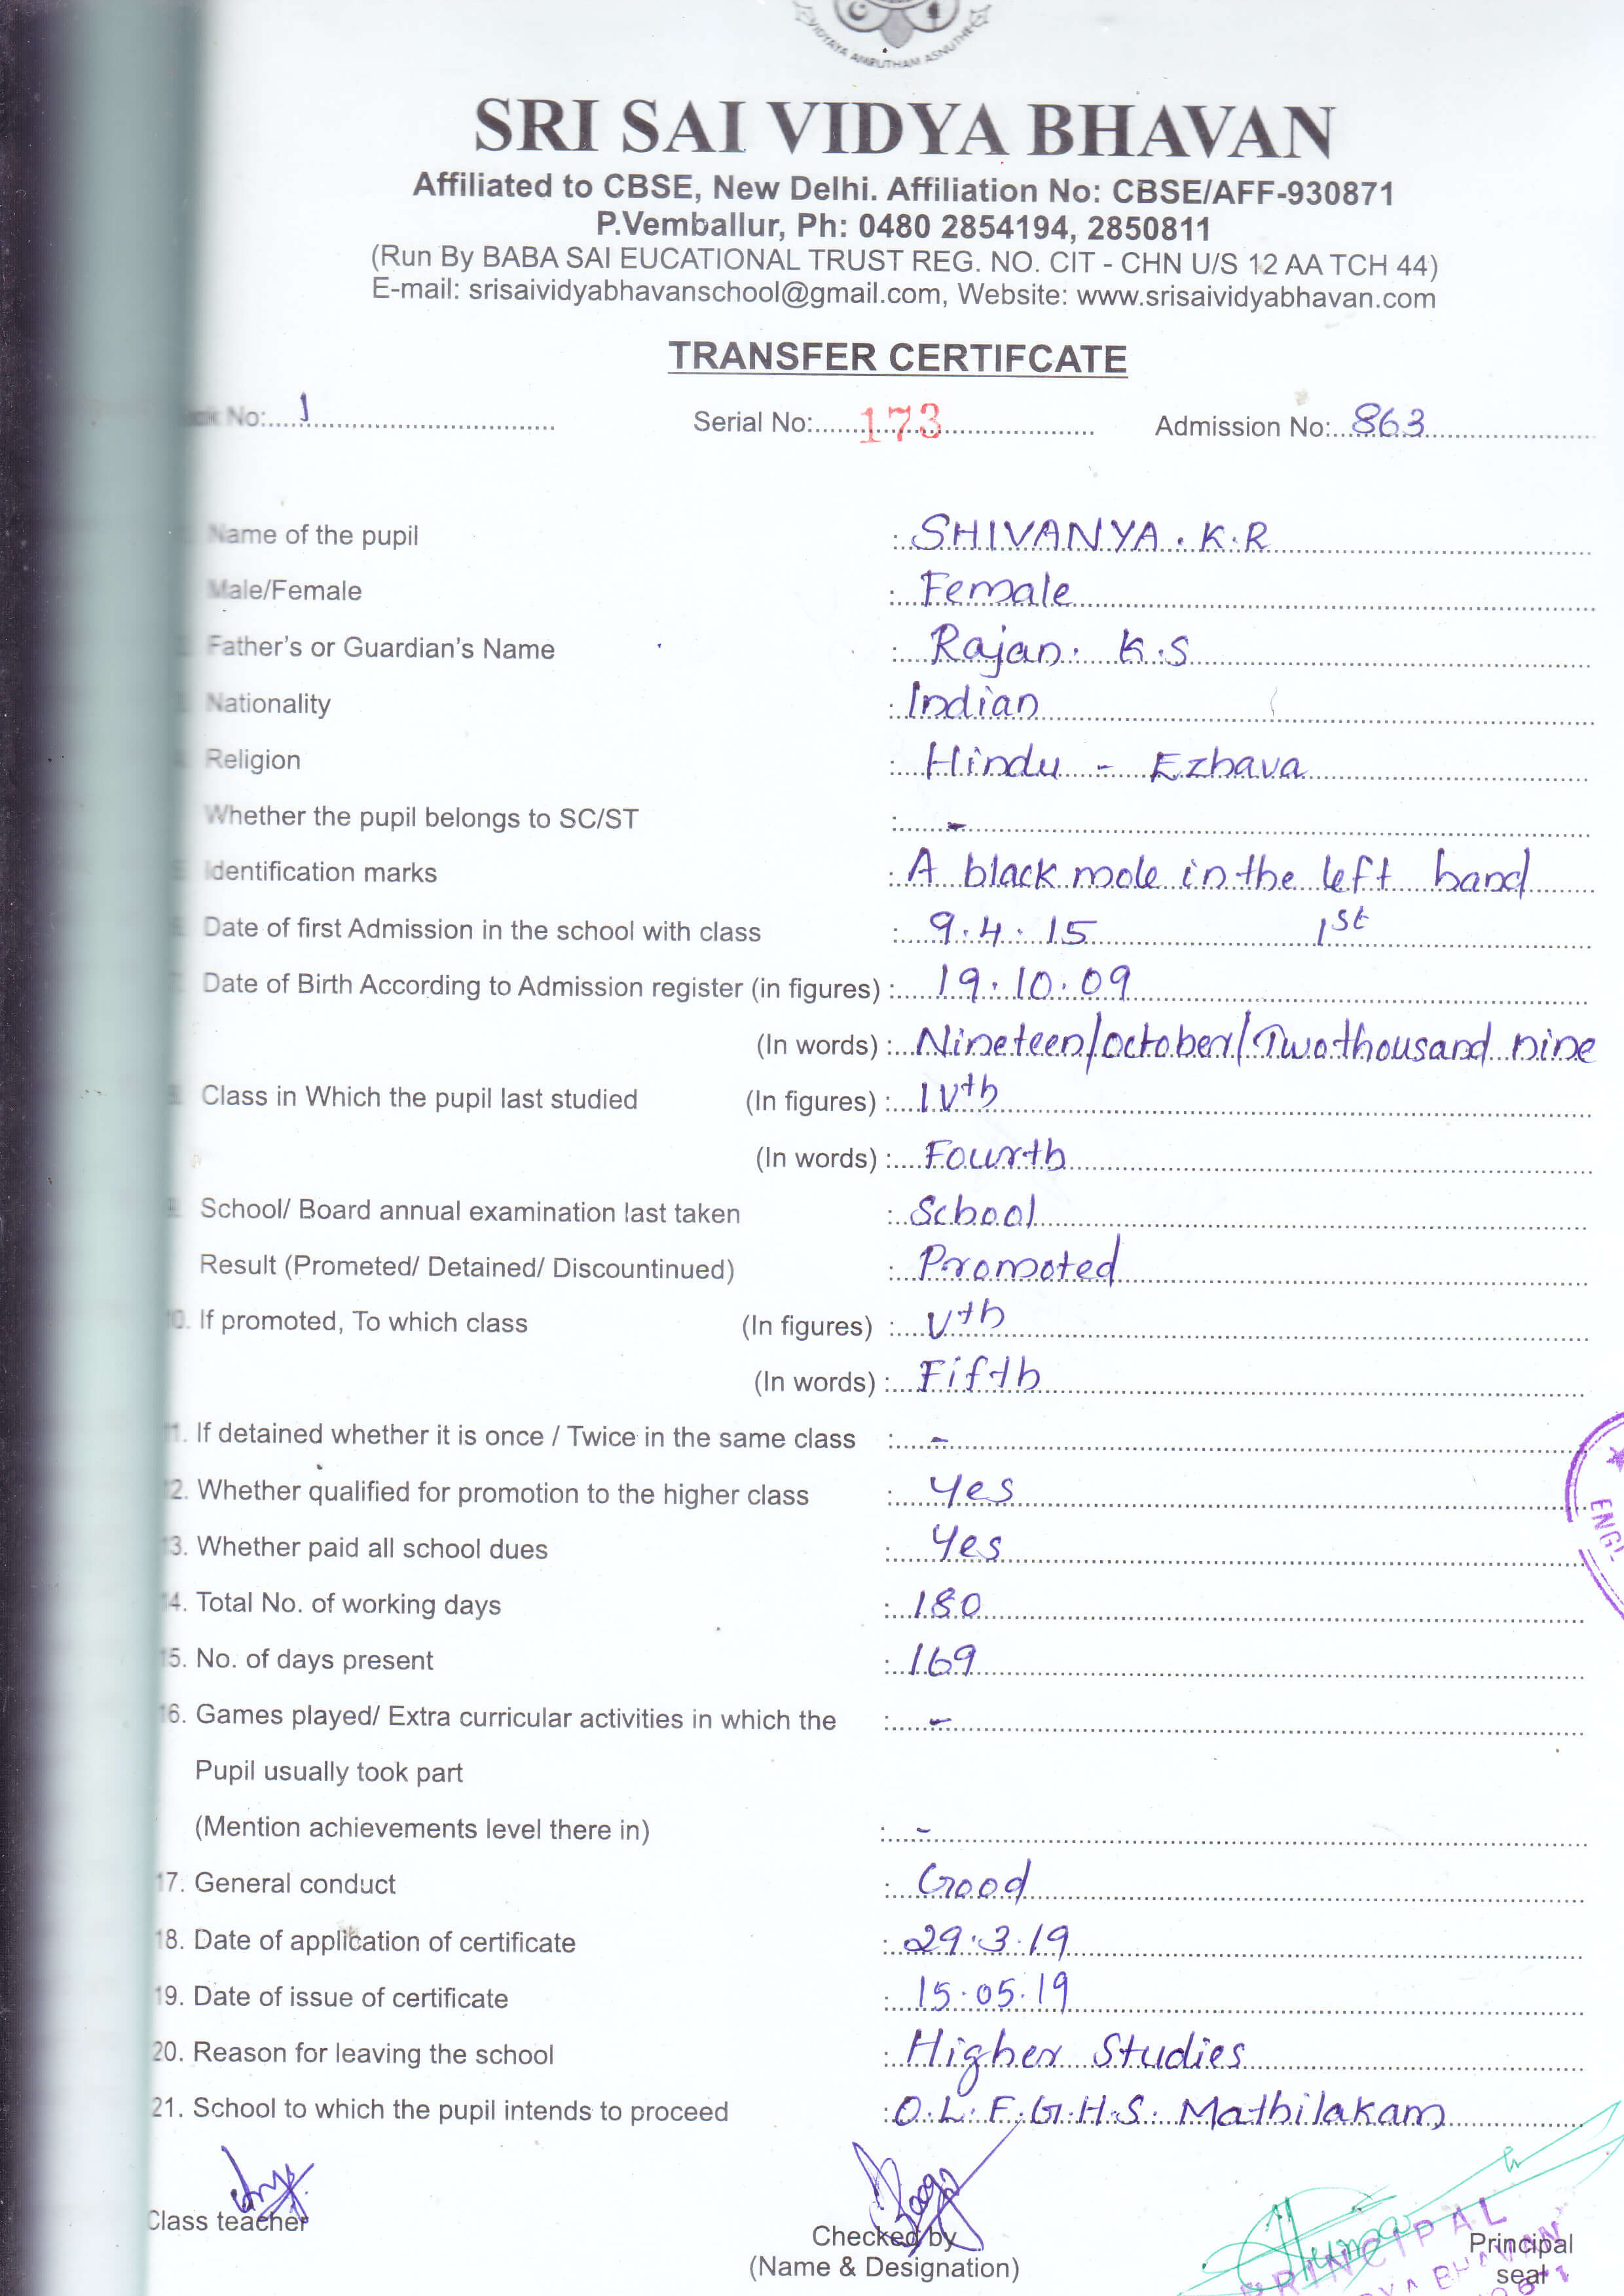 VIDYAYA AMRUTHAM ASNUTHE
SRI SAI VIDYA BHAVAN
Affiliated to CBSE, New Delhi. Affiliation No: CBSE/AFF-930871
P.Vemballur, Ph: 0480 2854194, 2850811
(Run By BABA SAI EUCATIONAL TRUST REG. NO. CIT - CHN U/S 12 AA TCH 44)
E-mail: srisaividyabhavanschool@gmail.com, Website: www.srisaividyabhavan.com
TRANSFER CERTIFCATE
No: 1 Serial No: 173 Admission No: 863
Name of the pupil : SHIVANYA . K.R
Male/Female : Female
Father's or Guardian's Name : Rajan. K.S
Nationality : Indian
Religion : Hindu - Ezhava
Whether the pupil belongs to SC/ST : -
Identification marks : A black mole in the left hand
Date of first Admission in the school with class : 9.4.15 1st
Date of Birth According to Admission register (in figures) : 19.10.09
(In words) : Nineteen/october/Two thousand nine
Class in Which the pupil last studied (In figures) : IVth
(In words) : Fourth
School/ Board annual examination last taken : School
Result (Prometed/ Detained/ Discountinued) : Promoted
10. If promoted, To which class (In figures) : Vth
(In words) : Fifth
11. If detained whether it is once / Twice in the same class : -
12. Whether qualified for promotion to the higher class : Yes
13. Whether paid all school dues : Yes
14. Total No. of working days : 180
15. No. of days present : 169
16. Games played/ Extra curricular activities in which the : -
Pupil usually took part
(Mention achievements level there in) : -
17. General conduct : Good
18. Date of application of certificate : 29.3.19
19. Date of issue of certificate : 15.05.19
20. Reason for leaving the school : Higher Studies
21. School to which the pupil intends to proceed : O.L.F.G.H.S. Mathilakam
ENGL
Class teacher
Checked by
(Name & Designation)
Principal
seal
PRINCIPAL
DYA BHAVAN